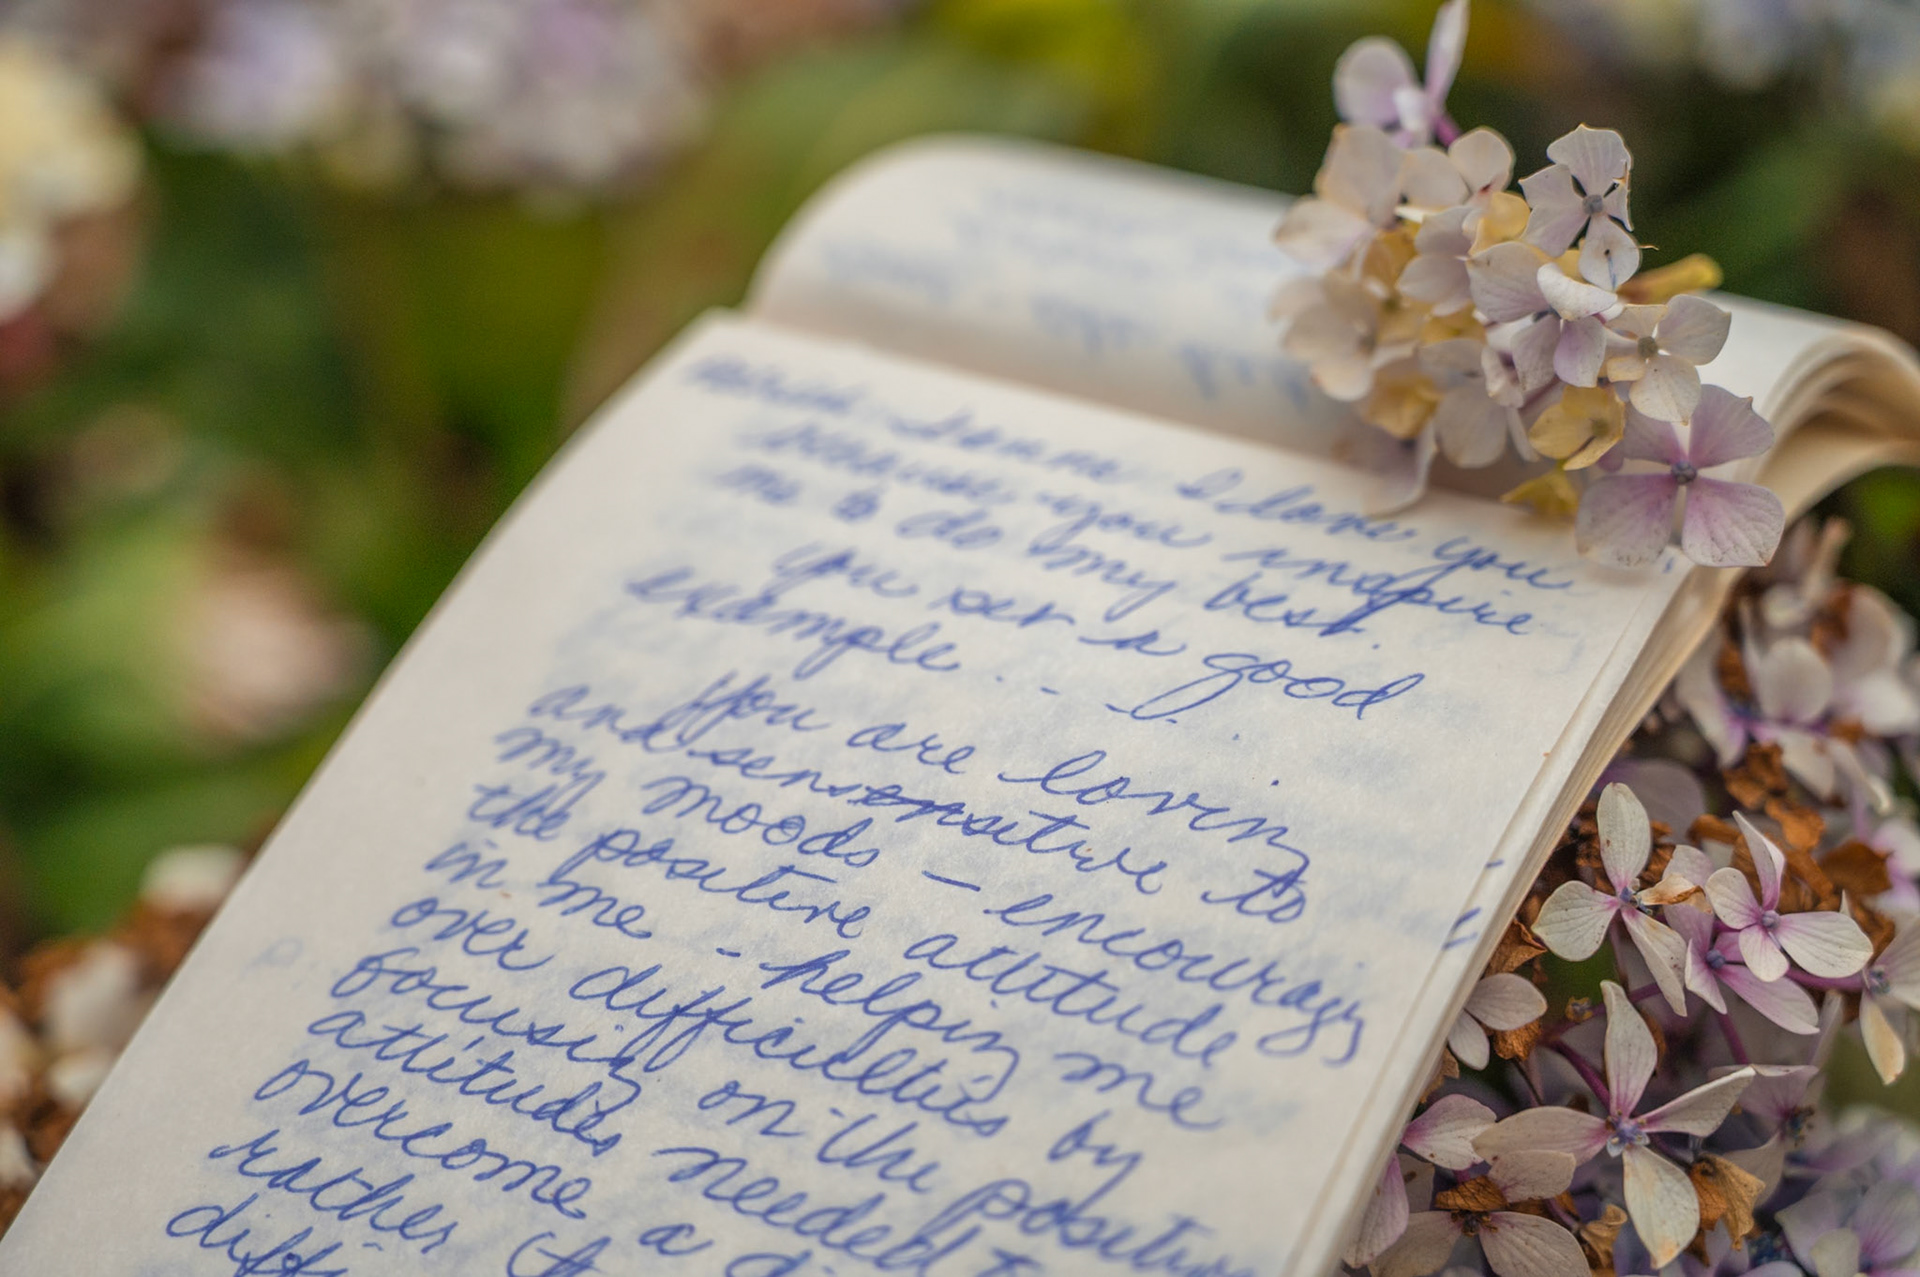 I love you
because you inspire
me to do my best.
You set a good
example...
You are loving
and sensitive to
my moods – encouraging
the positive attitude
in me – helping me
over difficulties by
focusing on the positive
attitudes needed
overcome a
rather